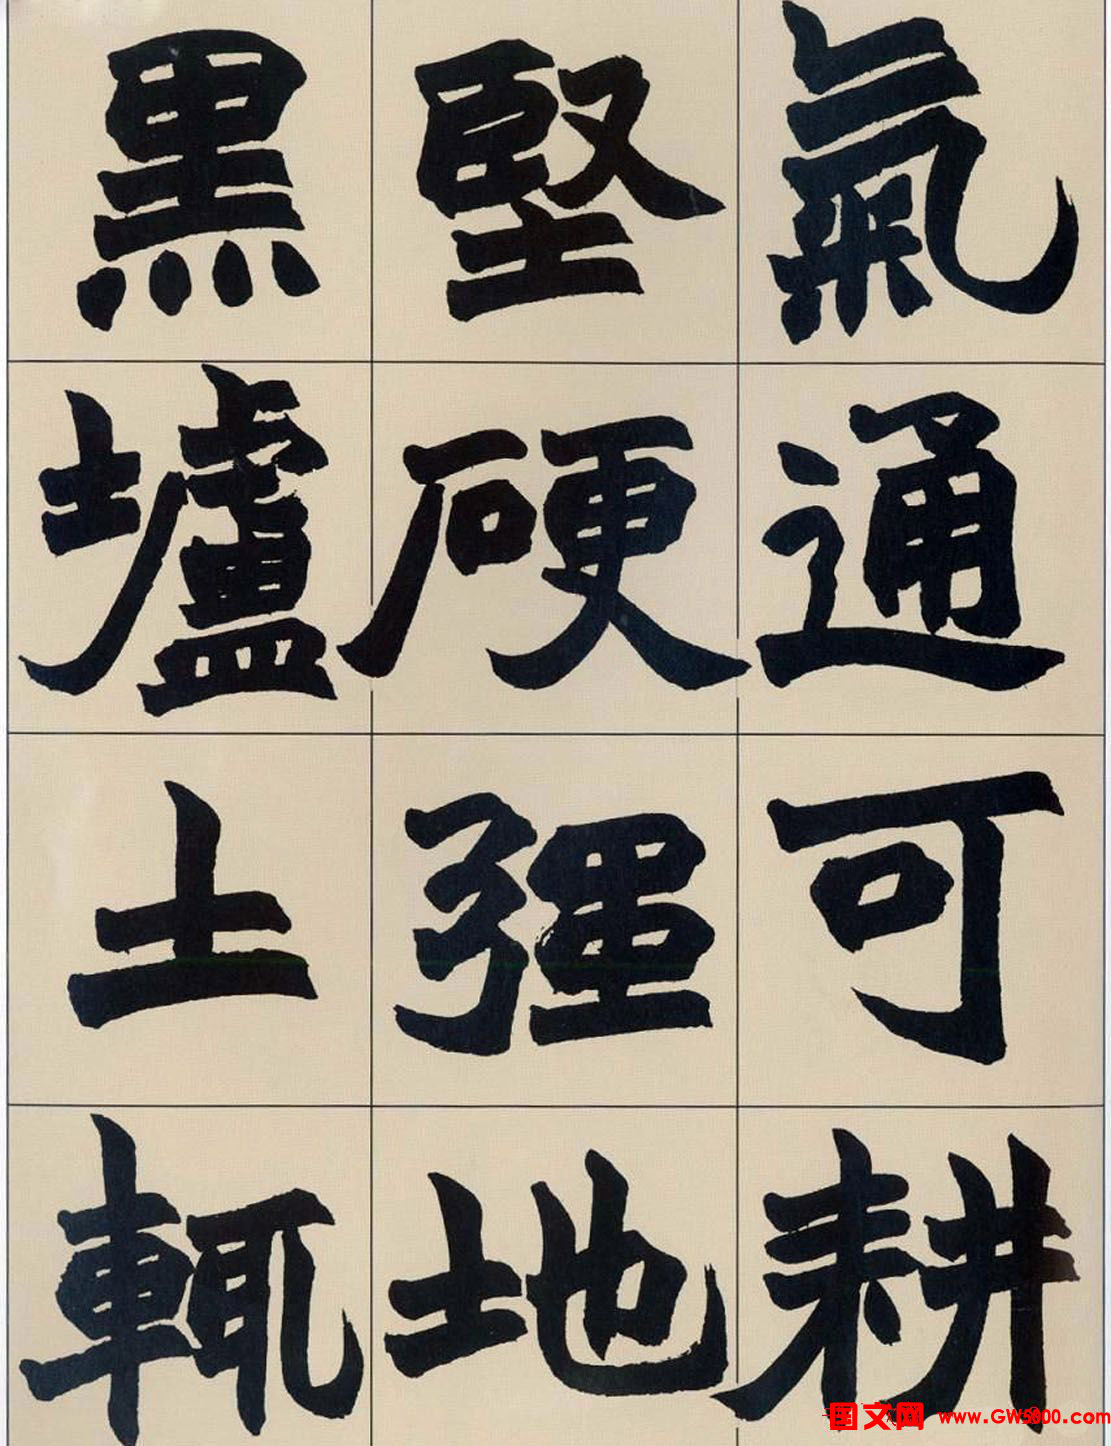 氣通可耕
堅硬強地
黑壚土輒
国文网 www.GW5000.com